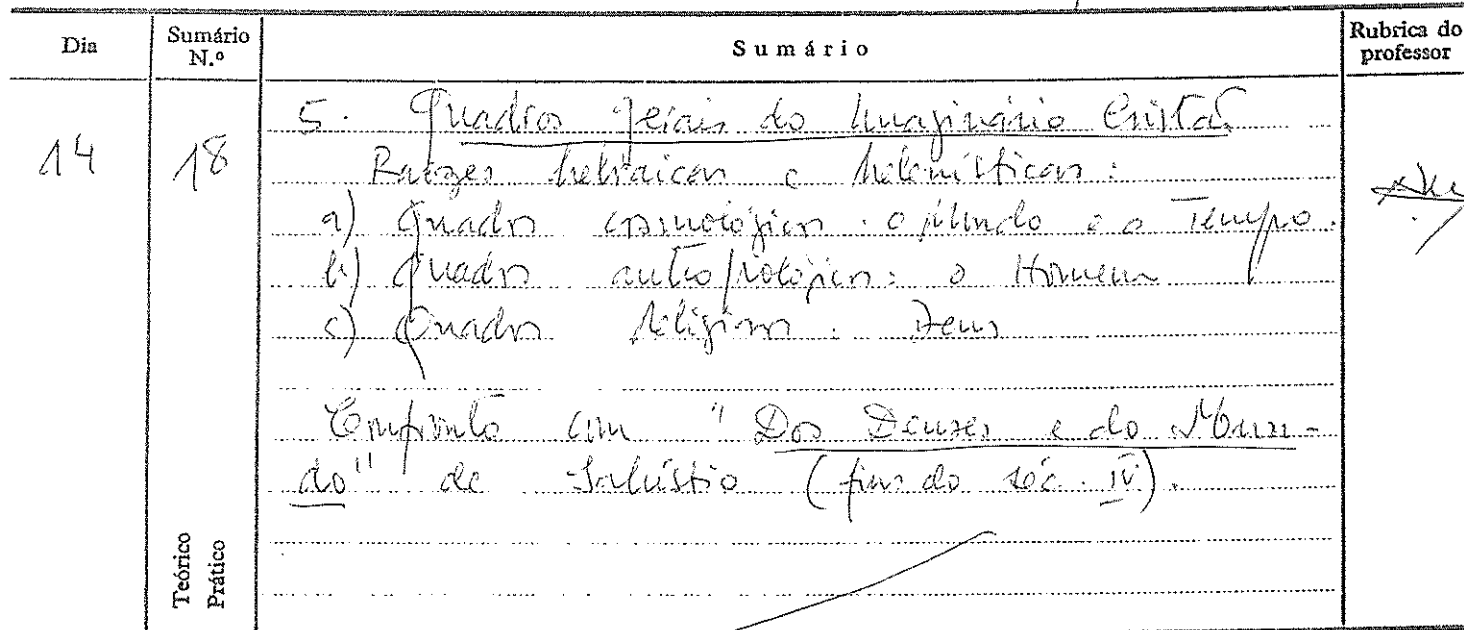 Dia
Sumário N.º
Sumário
Rubrica do professor
14
18
5. Quadros gerais do Imaginário Cristão
Raízes hebraicas e helenísticas:
a) Quadro cosmológico: o Mundo e o Tempo.
b) Quadro antropológico: o Homem
c) Quadro religioso: Deus
Confronto com "Dos Deuses e do Mun-
do" de Salústio (fins do séc. IV).
Teórico
Prático